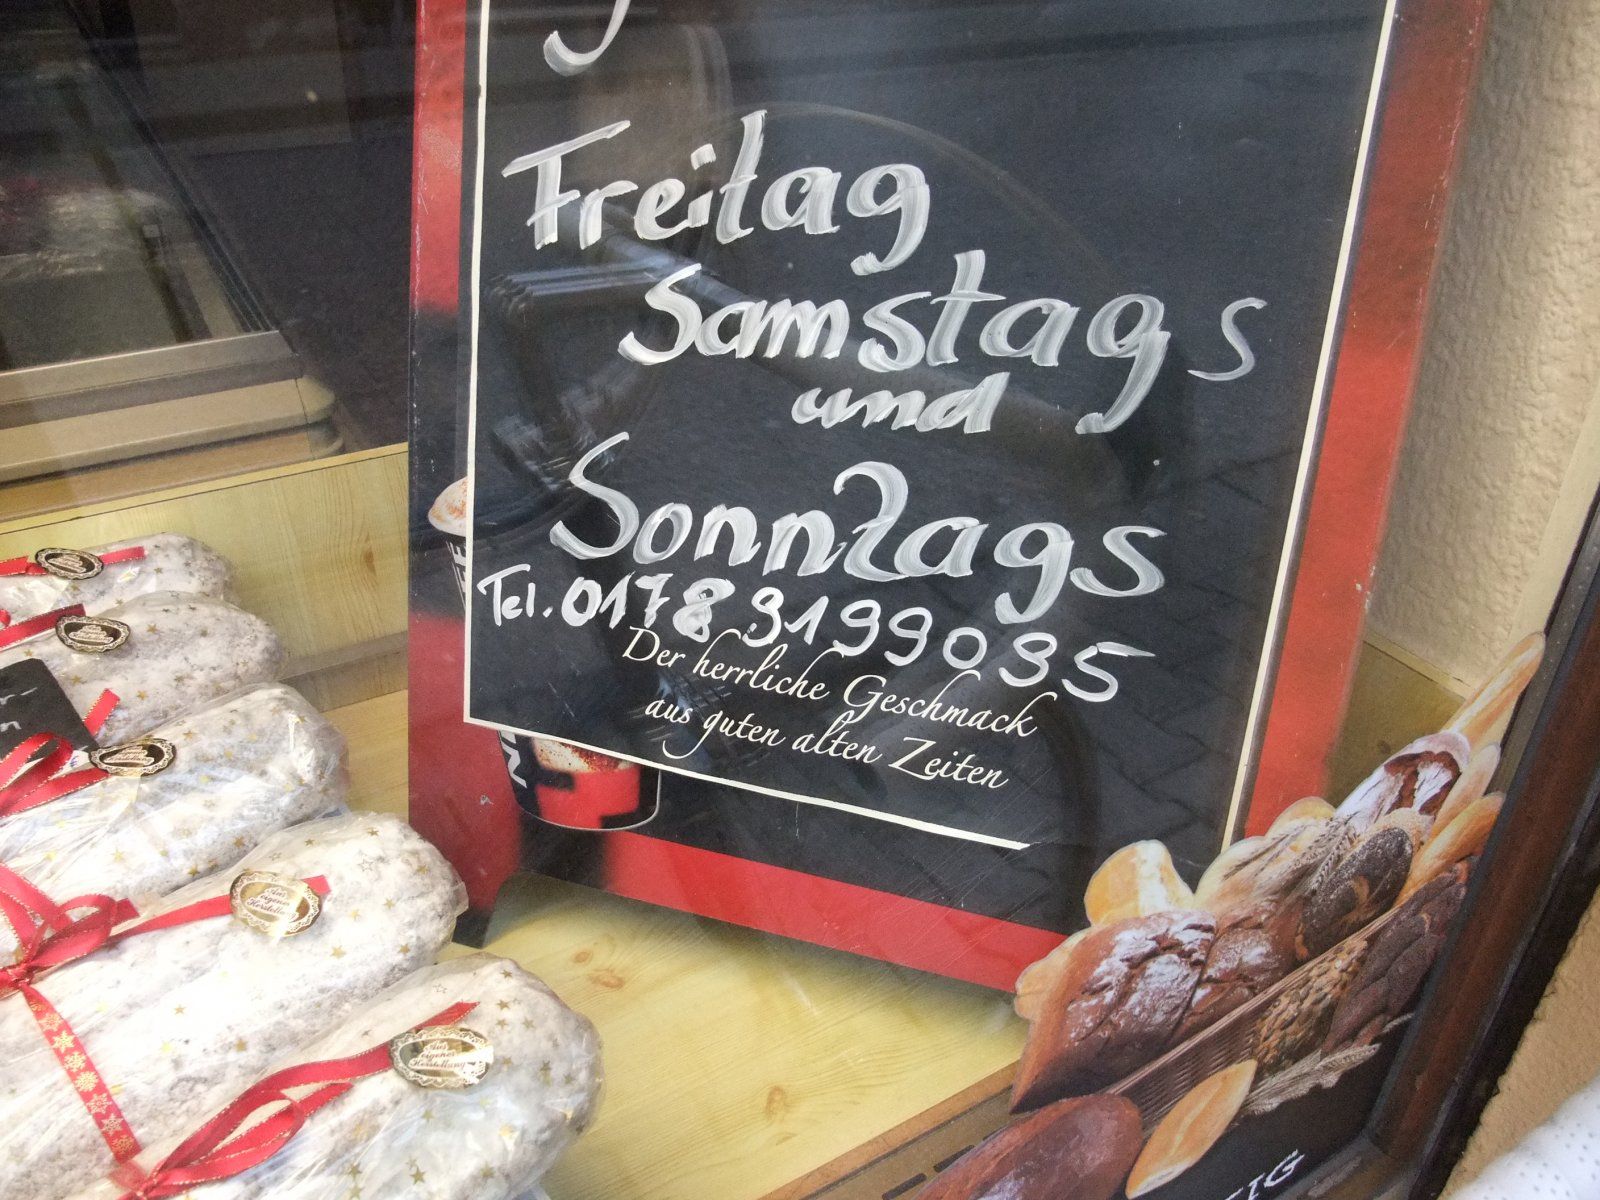 Freitag
Samstags
und
Sonntags
Tel. 0178 3199035
Der herrliche Geschmack
aus guten alten Zeiten
Aus
eigener
Herstellung
Aus
eigener
Herstellung